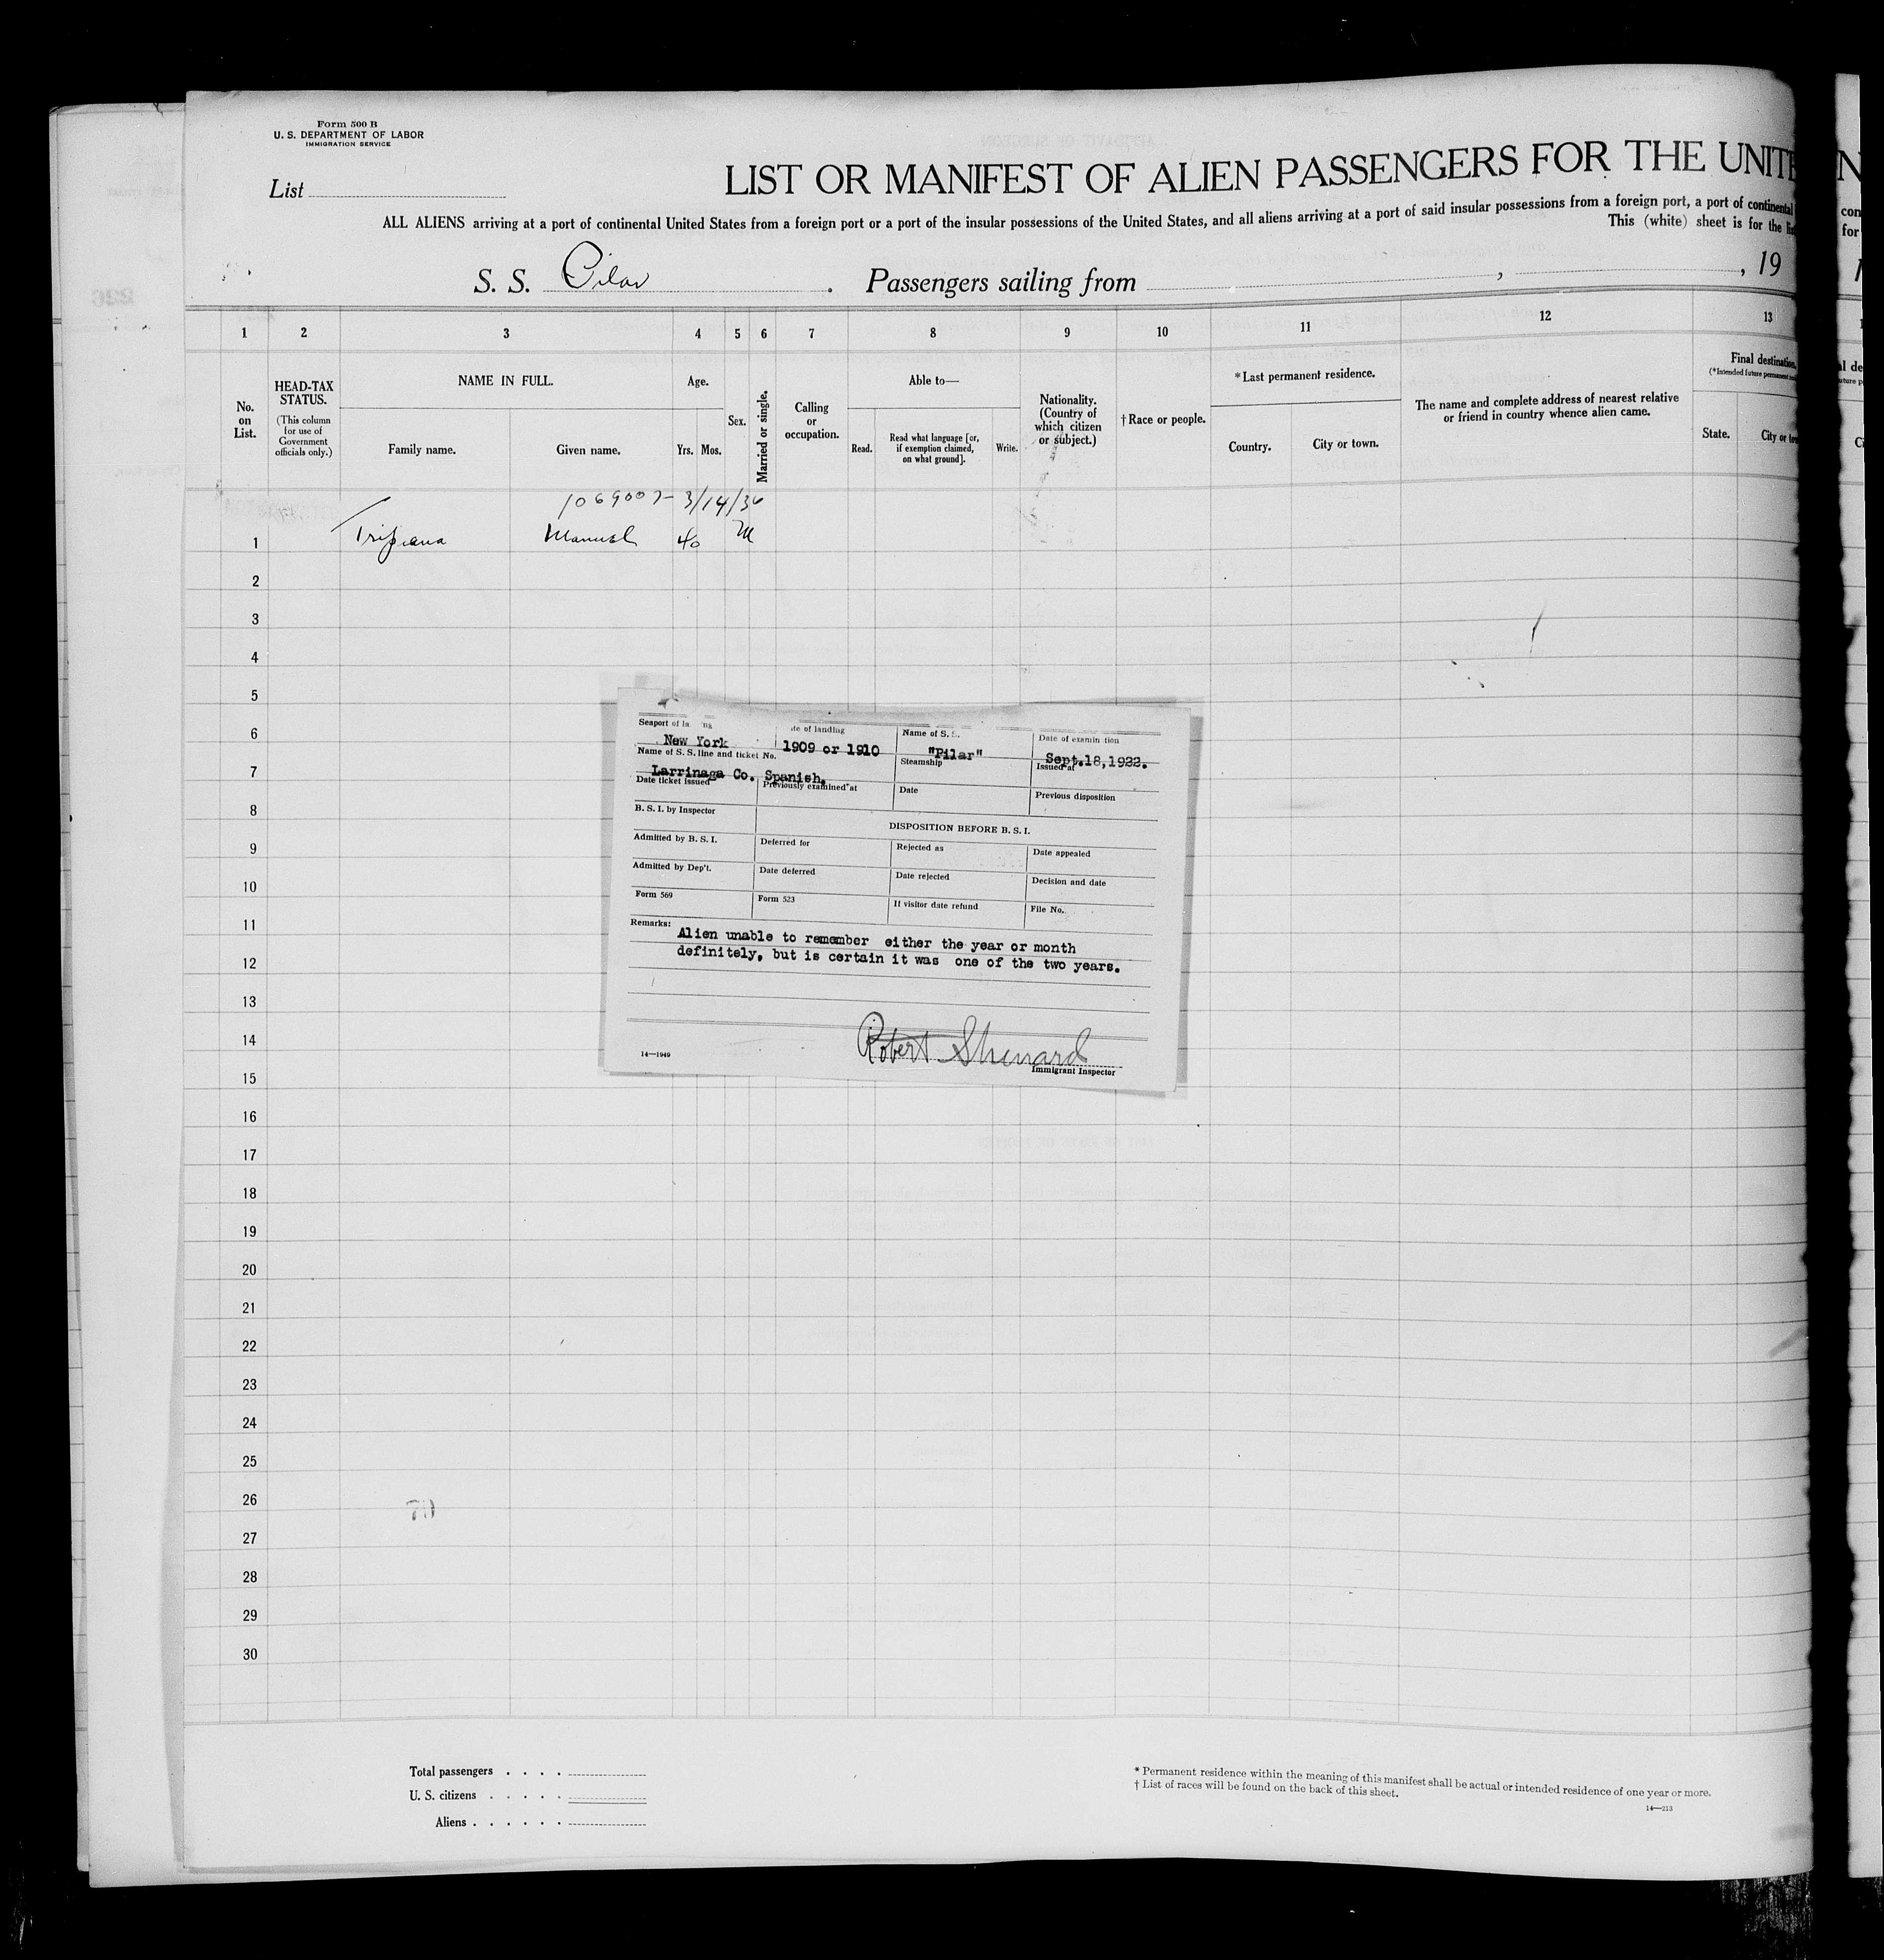 Form 500 B
U. S. DEPARTMENT OF LABOR
IMMIGRATION SERVICE
List
LIST OR MANIFEST OF ALIEN PASSENGERS FOR THE UNITE
ALL ALIENS arriving at a port of continental United States from a foreign port or a port of the insular possessions of the United States, and all aliens arriving at a port of said insular possessions from a foreign port, a port of continental
This (white) sheet is for the
S. S. Pilar . Passengers sailing from , , 19
1 2 3 4 5 6 7 8 9 10 11 12 13
No. on List.
HEAD-TAX STATUS.
(This column for use of Government officials only.)
NAME IN FULL.
Family name. Given name.
Age.
Yrs. Mos.
Sex.
Married or single.
Calling or occupation.
Able to—
Read.
Read what language [or, if exemption claimed, on what ground].
Write.
Nationality. (Country of which citizen or subject.)
† Race or people.
* Last permanent residence.
Country. City or town.
The name and complete address of nearest relative or friend in country whence alien came.
Final destination,
(*Intended future permanent
State. City or
3/14/36
1 Manuel 40 M
2
3
4
5
6
7
8
9
10
11
12
13
14
15
16
17
18
19
20
21
22
23
24
25
26
27
28
29
30
Seaport of
New York
of landing
1909 or 1910
Name of S. S.
"Pilar"
Steamship
Date of examin tion
Sept.18,1922.
Issued at
Name of S. S. line and ticket No.
Larrinaga Co. Spanish.
Date ticket issued Previously examined at Date Previous disposition
B. S. I. by Inspector
DISPOSITION BEFORE B. S. I.
Admitted by B. S. I. Deferred for Rejected as Date appealed
Admitted by Dep't. Date deferred Date rejected Decision and date
Form 569 Form 523 If visitor date refund File No.
Remarks: Alien unable to remember either the year or month
definitely, but is certain it was one of the two years.
Robert
14—1949
Immigrant Inspector
Total passengers . . . .
U. S. citizens . . . . .
Aliens . . . . . .
* Permanent residence within the meaning of this manifest shall be actual or intended residence of one year or more.
† List of races will be found on the back of this sheet.
14—213